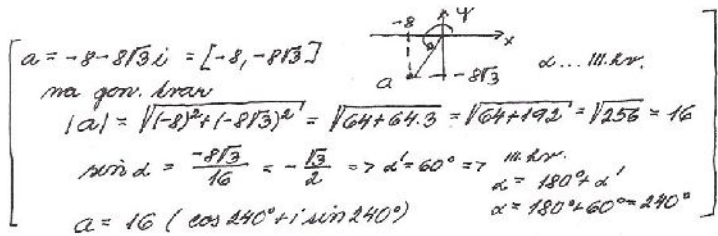 a = -8-8√3i = [-8, -8√3]
-8 ψ x a -8√3
α... III. kv.
na gon. tvar
|a| = √(-8)²+(-8√3)² = √64+64.3 = √64+192 = √256 = 16
sin α = -8√3/16 = -√3/2 => α' = 60° => III. kv.
α = 180°+α'
α = 180°+60° = 240°
a = 16 (cos 240°+i sin 240°)